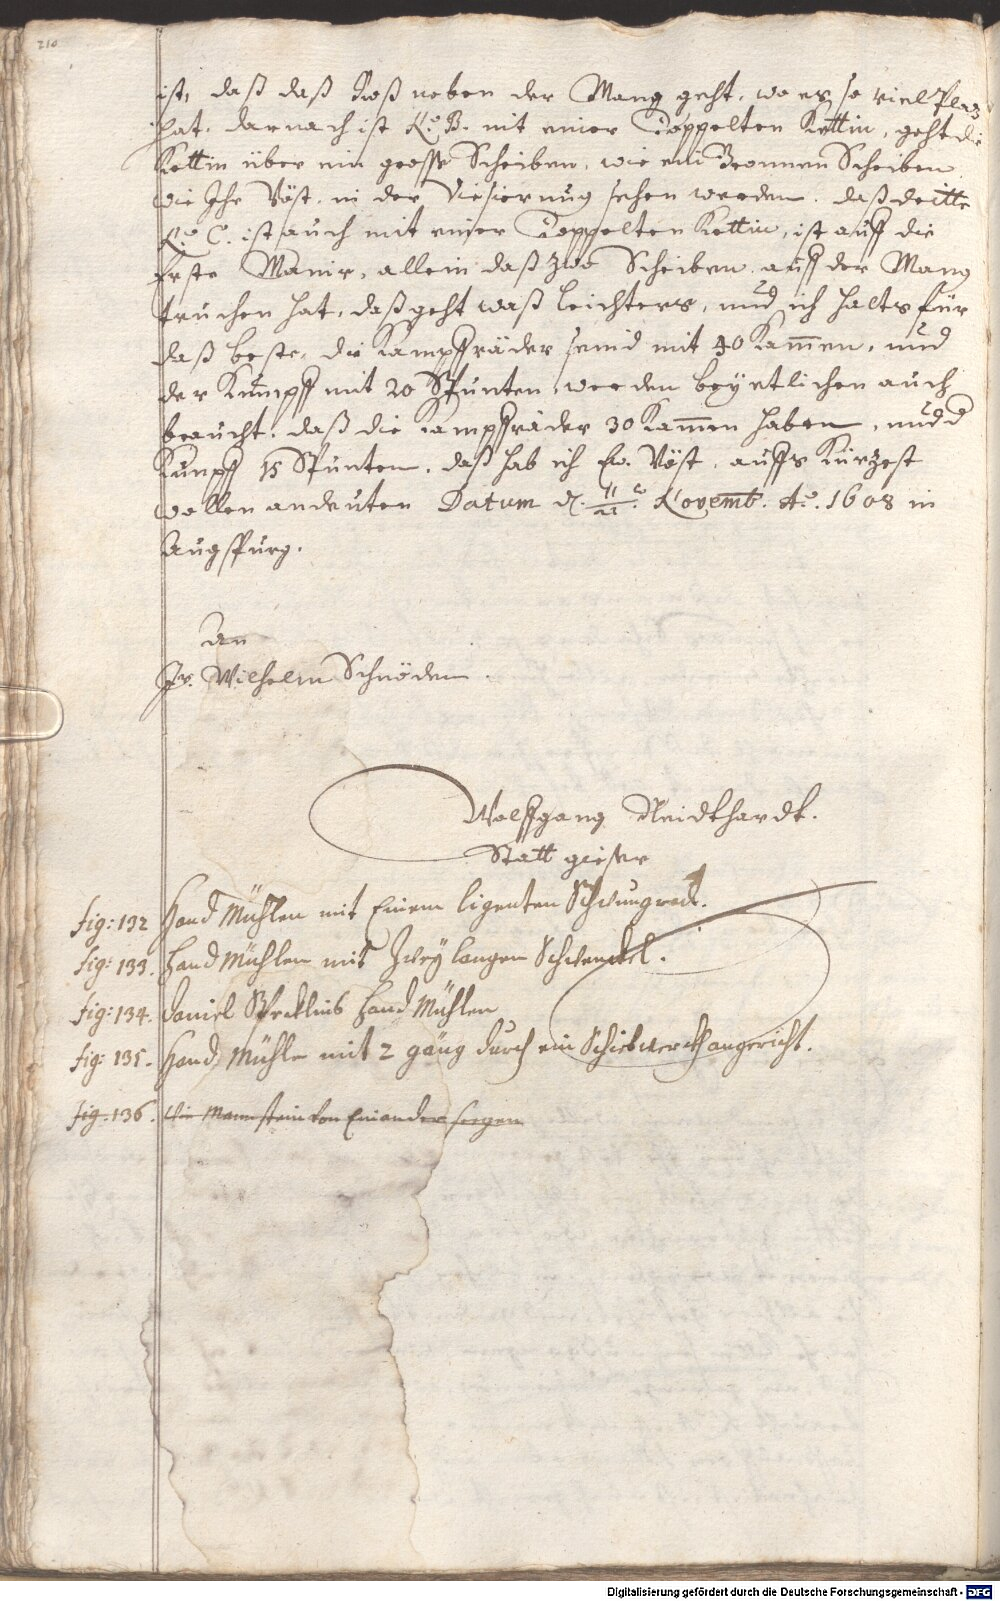 210
ist, daß daß Roß neben der Mang geht, wo es so viel Plaz
hat. darnach ist N.º B. mit einer Doppelten Kettin, geht die
Kettin über ein grosse Scheiben, wie ein Bronnen Scheiben
wie Ihr Vöst. in der Visierung sehen werden. daß dritte
N.º C. ist auch mit einer Doppelten Kettin, ist auff die
Erste Manir, allein daß zwo Scheiben auff der Mang
truchen hat, daß geht waß leichters, und ich halts für
daß beste, die Kampffräder seind mit 40 Kam̅en, und
der Kumpff mit 20 Spunten, werden bey etlichen auch
braucht, daß die Kampffräder 30 Kam̅en haben, und d
Kumpff 15 Spunten. daß hab ich Ew. Vöst. auffs Kürzest
wollen andeuten Datum d. 11/21 Novemb. Aº. 1608 in
Augspurg.
An
Jr. Wilhelm Schnöden.
Wolffgang Neidthardt.
Statt gieser
fig: 132 Hand Mühlen mit Einem ligenten Schwungrad.
fig: 133. Hand Mühlen mit Zwey langen Schwenckel.
fig: 134. Daniel Specklins Hand Mühlen
fig: 135. Hand Mühle mit 2 gäng durch ein Schiebwerckh angericht.
fig. 136. Wie Man stein von Einander
Digitalisierung gefördert durch die Deutsche Forschungsgemeinschaft - DFG